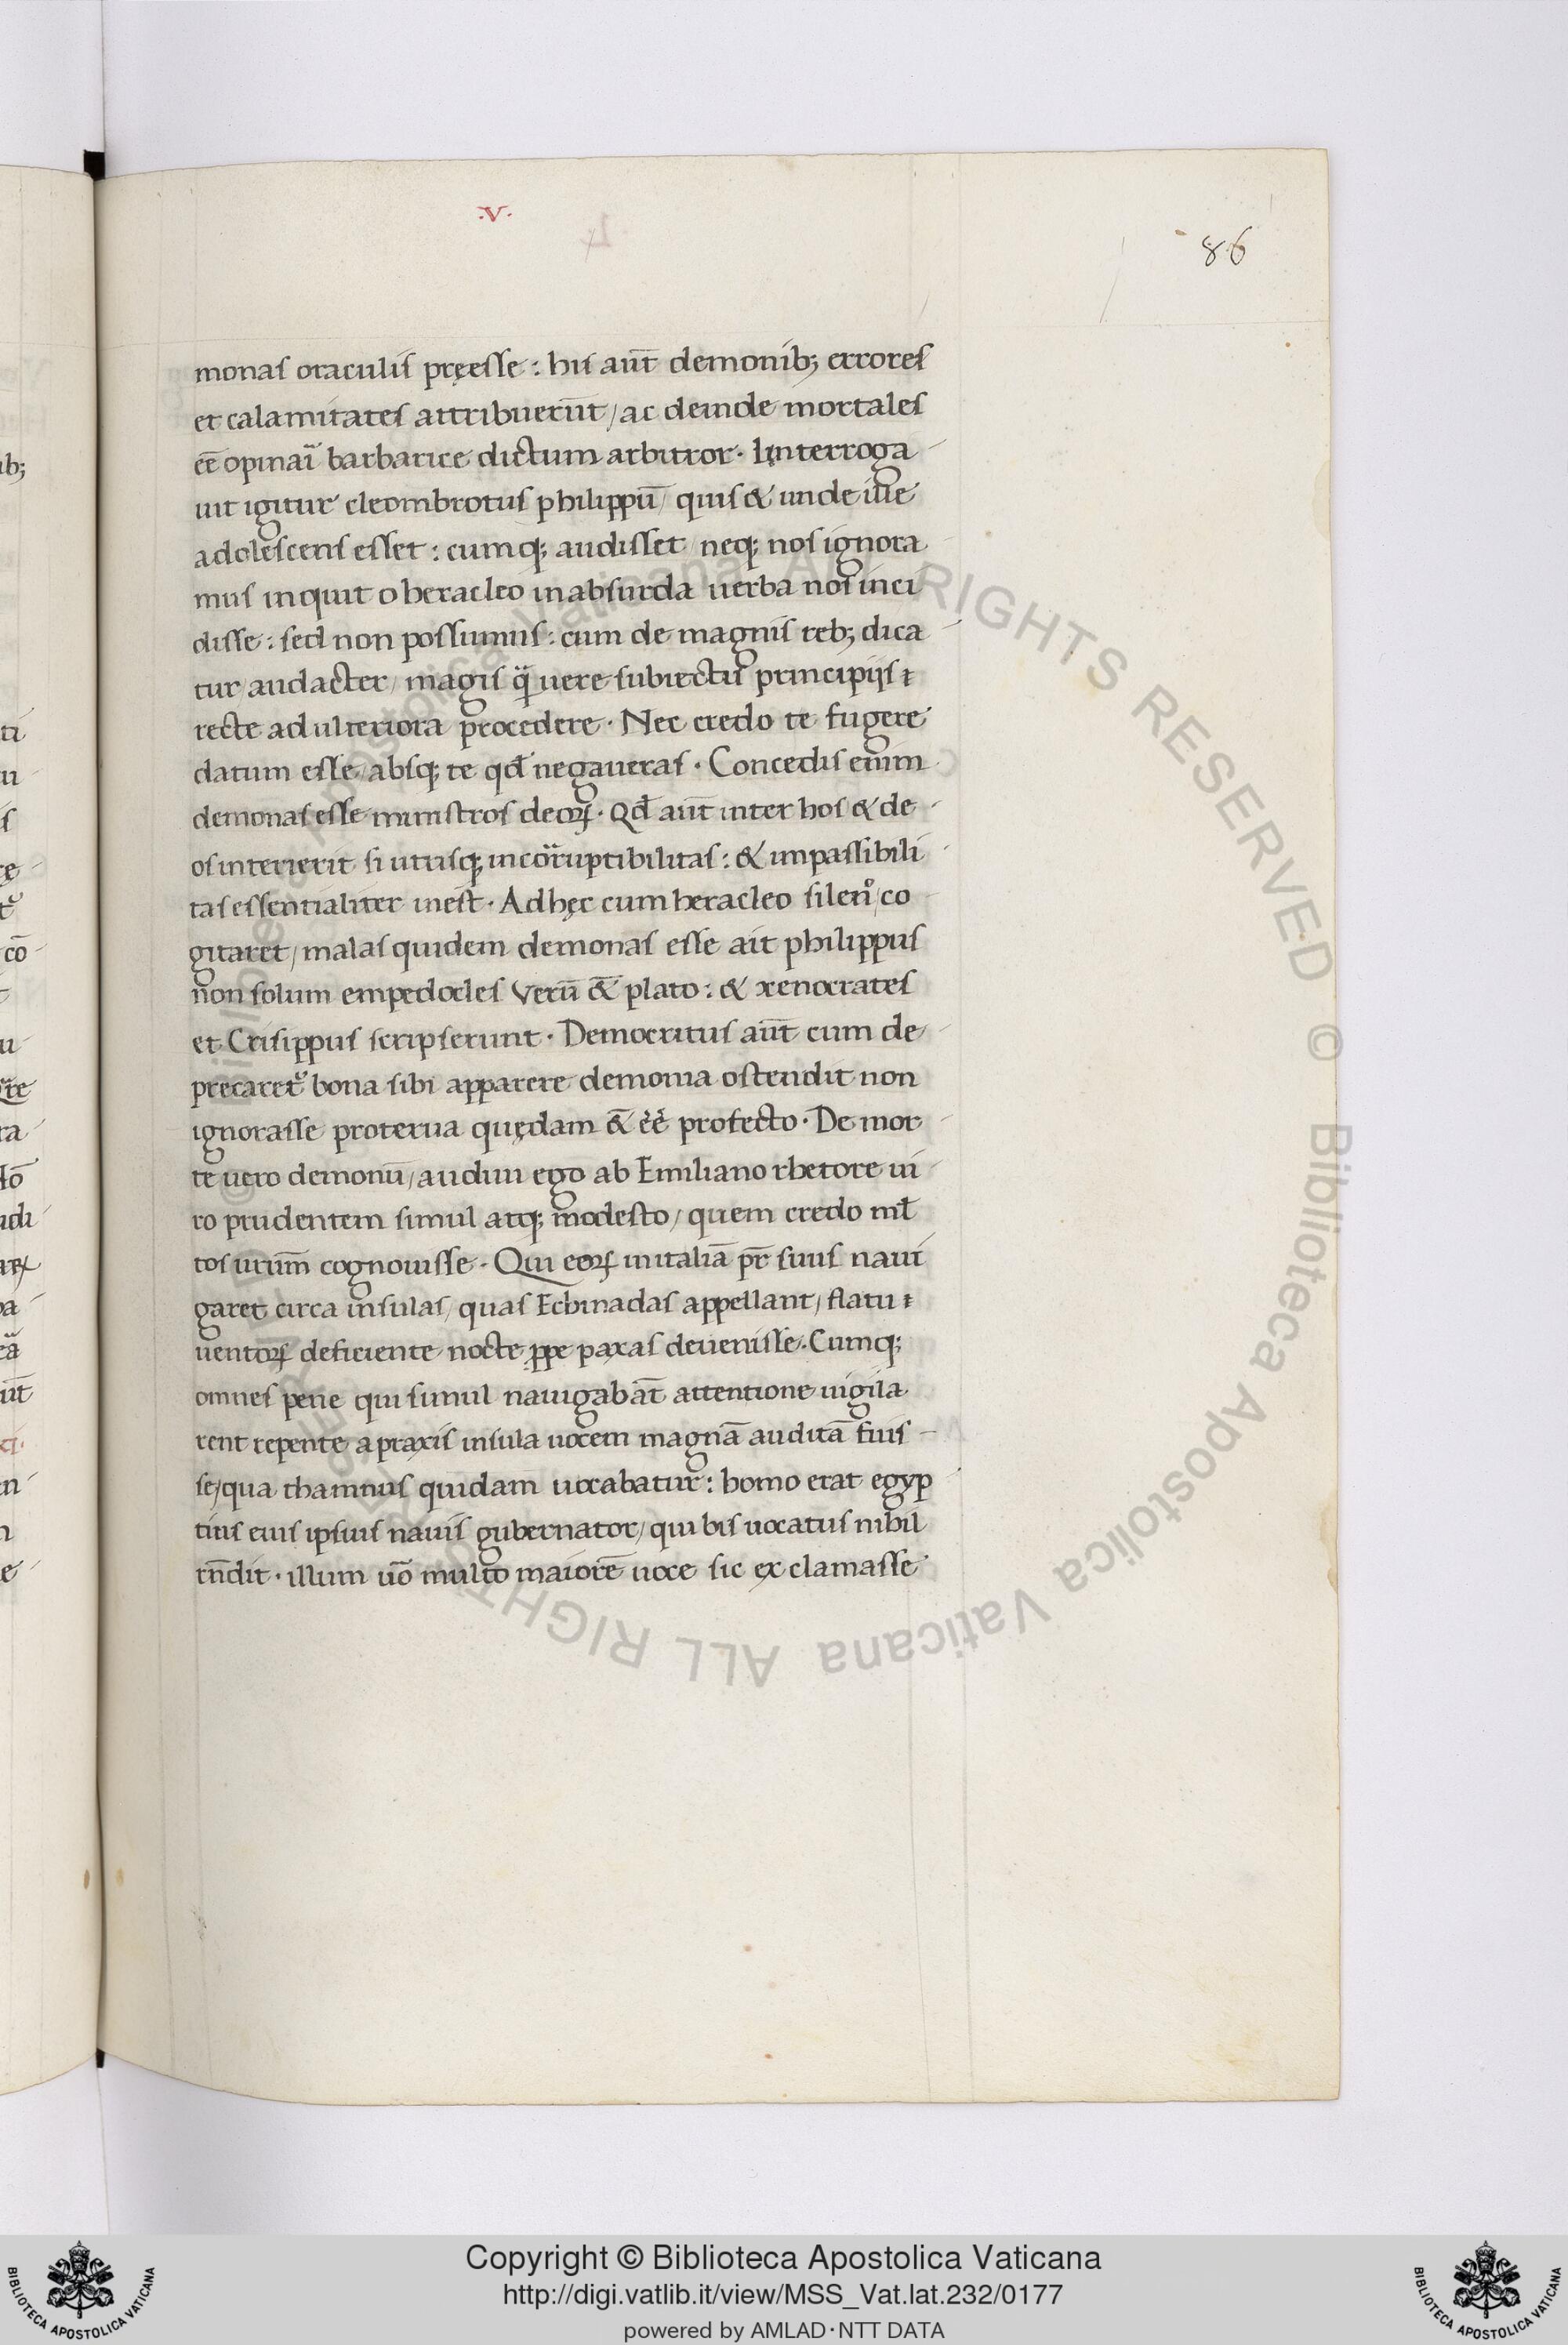 .V.
86
monas oraculis pręesse: his aut̄ demonib; errores
et calamitates attribuerūt / ac deinde mortales
eē opinari barbarice dictum arbitror. Interroga
uit igitur cleombrotus philippū / quis & unde iste
adolescens esset: cumq; audisset neq; nos ignora
mus inquit o heracleo in absurda uerba nos inci
disse: sed non possumus: cum de magnis reb; dica
tur audacter / magis quere subiectis principijs
recte ad ulteriora procedere. Nec credo te fugere
datum esse / absq; te qđ negaueras. Concedis enim
demonas esse ministros deoꝝ. Qđ aut̄ inter hos & de
os interierit si utrisq; incorruptibilitas: & impassibili
tas essentialiter inest. Ad hęc cum heracleo silens / co
gitaret / malas quidem demonas esse ait philippus
non solum empedocles Verū & plato: & xenocrates
et Crisippus scripserunt. Democritus aut̄ cum de
precaret᷑ bona sibi apparere demonia ostendit non
ignorasse proterua quędam & eē profecto. De mor
te uero demonū / audiui ego ab Emiliano rhetore ui
ro prudentem simul atq; modesto / quem credo ml̄
tos urūm cognouisse. Qui eoꝝ in italiā pr̄ suus naui
garet circa insulas / quas Echinadas appellant / flatu
uentoꝝ deficiente nocte ꝓpe paxas deuenisse. Cumq;
omnes pene qui simul nauigabāt attentione uigila
rent repente a praxis insula uocem magnā auditā fuis
se / qua thamnus quidam uocabatur: homo erat egyp
tius eius ipsius nauis gubernator / qui bis uocatus nihil
rn̄dit. illum uō multo maiorē uoce sic exclamasse
Copyright © Biblioteca Apostolica Vaticana
http://digi.vatlib.it/view/MSS_Vat.lat.232/0177
powered by AMLAD·NTT DATA